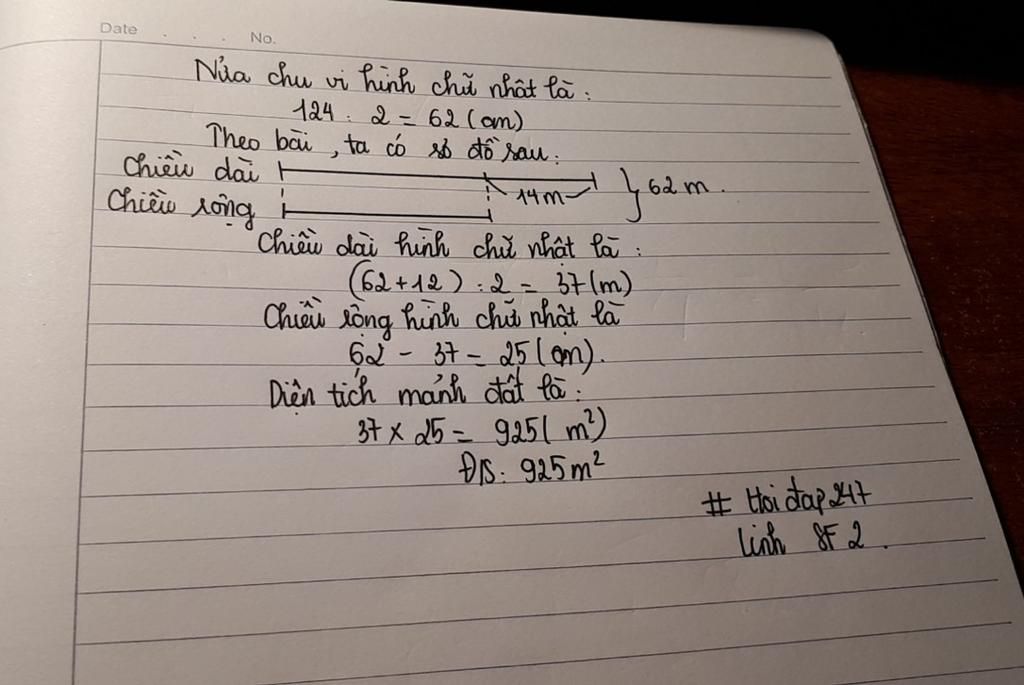 Date . . . No.
Nửa chu vi hình chữ nhât là :
124 : 2 = 62 (m)
Theo bài, ta có sơ đồ sau :
Chiều dài 14m 62 m .
Chiều rộng
Chiều dài hình chữ nhật là :
(62+12) : 2 = 37 (m)
Chiều rộng hình chữ nhật là
62 - 37 = 25 (m).
Diện tích mảnh đất là :
37 x 25 = 925 ( m²)
Đ/S : 925 m²
# Hoi đap 247
linh 8F 2 .